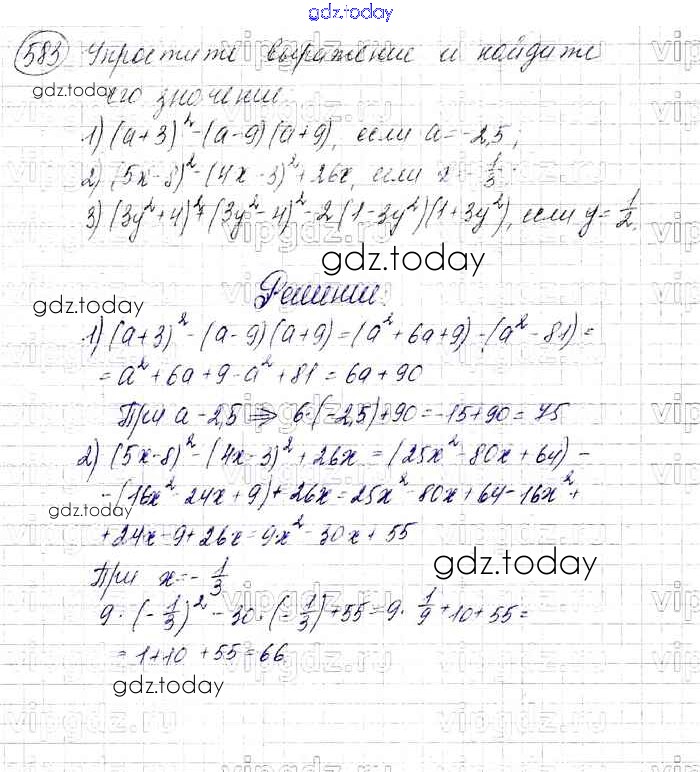 gdz.today
583 Упростите выражение и найдите
gdz.today
его значение
1) (a+3)² - (a-9)(a+9), если a = -2,5;
2) (5x-8)² - (4x-3)² + 26x, если x = -1/3
3) (3y²+4)² + (3y²-4)² - 2(1-3y²)(1+3y²), если y = 1/2.
gdz.today
gdz.today
Решение:
1) (a+3)² - (a-9)(a+9) = (a²+6a+9) - (a²-81) =
= a²+6a+9-a²+81 = 6a+90
При a-2,5 ⇒ 6·(-2,5)+90 = -15+90 = 75
2) (5x-8)² - (4x-3)² + 26x = (25x²-80x+64) -
- (16x²-24x+9) + 26x = 25x²-80x+64-16x²+
gdz.today
+24x-9+26x = 9x²-30x+55
gdz.today
При x = -1/3
9·(-1/3)² - 30·(-1/3) + 55 = 9·1/9 + 10 + 55 =
= 1+10+55 = 66
gdz.today
vipgdz.ru